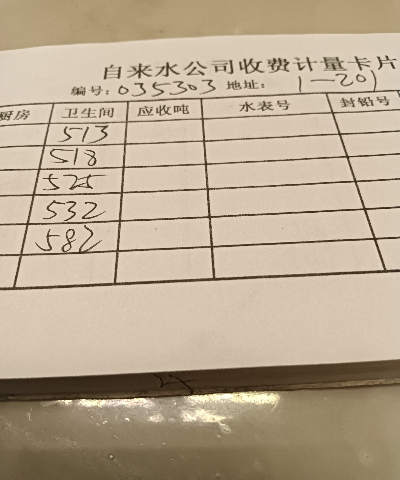 自来水公司收费计量卡片
编号：035303 地址：1-201
厨房 卫生间 应收吨 水表号 封铅号
513
518
525
532
582